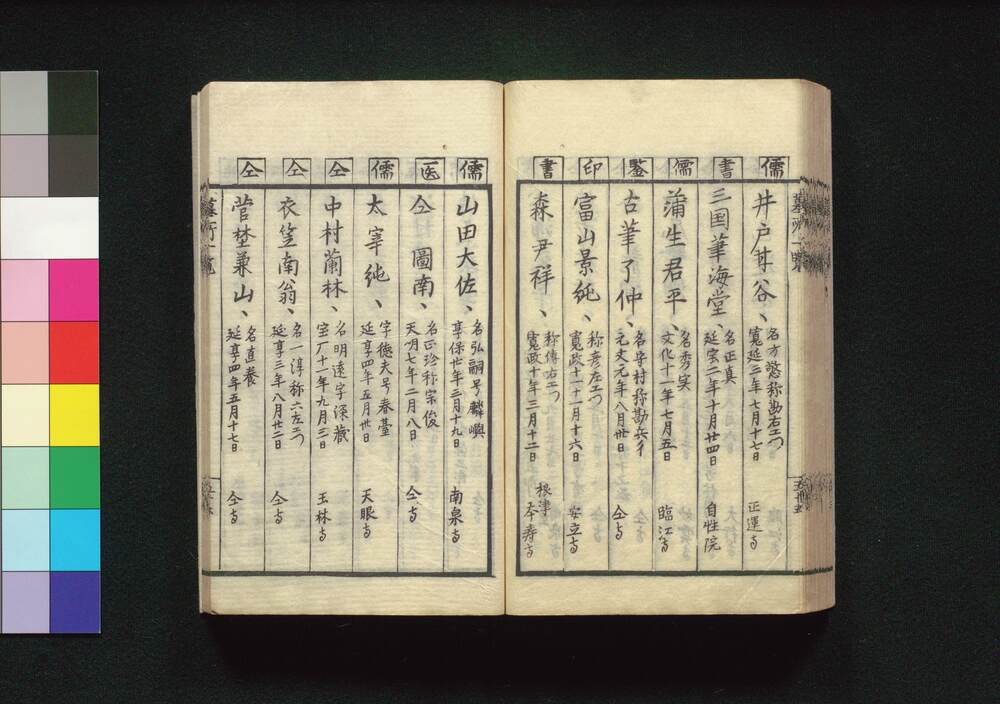 儒
井戸甘谷、
名方慾称勘右エ門
寛延三年七月十七日
正運寺
書
三国筆海堂、
名正真
延宝二年十月廿四日
自性院
儒
蒲生君平、
名秀実
文化十一年七月五日
臨江寺
鑒
古筆了仲、
名辛村称勘兵衛
元文元年八月廿日
仝寺
印
富山景純、
称彦左エ門
寛政十一年十一月十六日
安立寺
書
森尹祥、
称傳右エ門
寛政十年三月十二日
根津
本寿寺
儒
山田大佐、
名弘嗣号麟嶼
享保廿年三月十九日
南泉寺
医
仝 圖南、
名正珍称宗俊
天明七年二月八日
仝寺
儒
太宰純、
字徳夫号春臺
延享四年五月卅日
天眼寺
仝
中村蘭林、
名明遠字深蔵
宝暦十一年九月三日
玉林寺
仝
衣笠南翁、
名一淳称六左エ門
延享三年八月廿二日
仝寺
仝
菅埜兼山、
名直養
延享四年五月十七日
仝寺